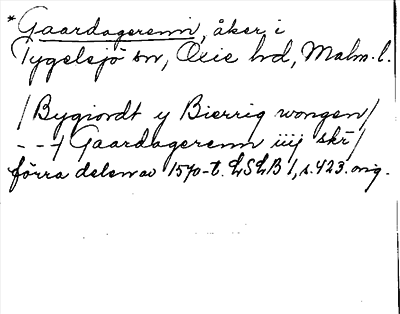 *Gaardagerenn, åker i
Tygelsjö sn, Oxie hd, Malm. l.
/Bygiordt y Bierrig wongen/
- - -/ Gaardagerenn iiij skr/
förra delen av 1570-t. LSLB 1, s. 423. orig.